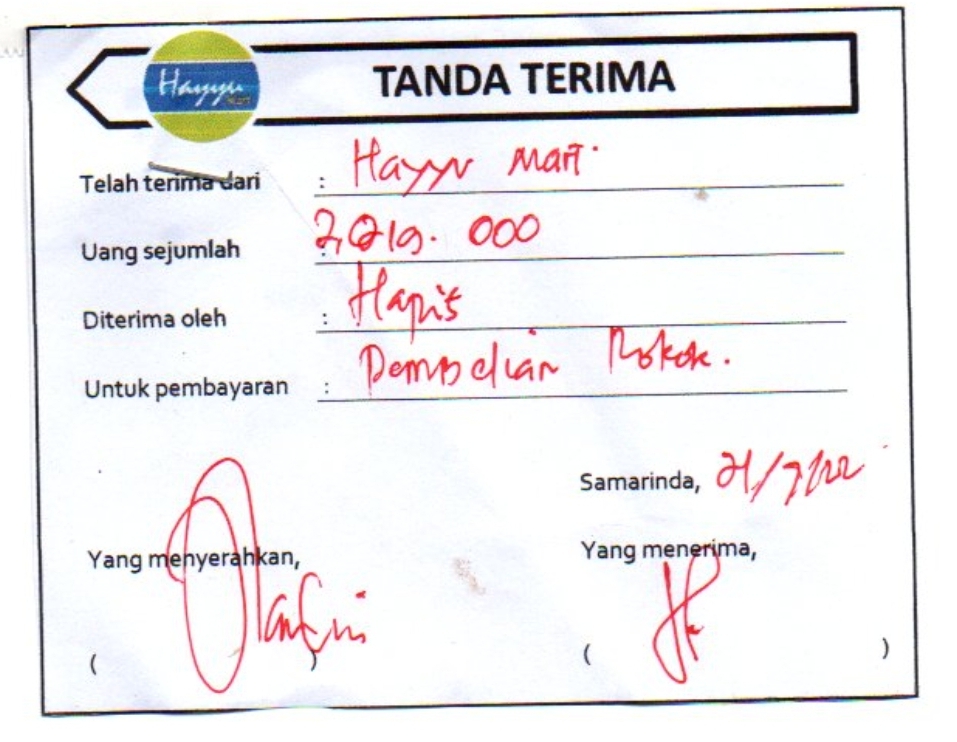 Hayyu
Mart
TANDA TERIMA
Telah terima dari : Hayyu Mart
Uang sejumlah :
000
Diterima oleh : Hapis
Untuk pembayaran : Pembelian Rokok.
Samarinda, 21/7/22
Yang menyerahkan,
Yang menerima,
( )
( )